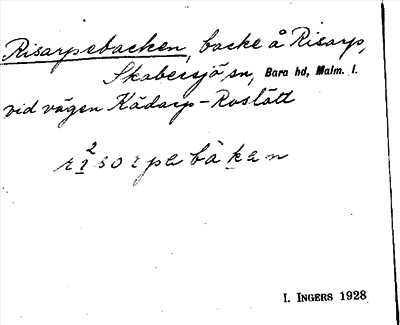 Risarpebacken, backe å Risarp,
Skabersjö sn, Bara hd, Malm. l.
vid vägen Kädarp-Roslätt
ri²sorpebàkan
I. INGERS 1928